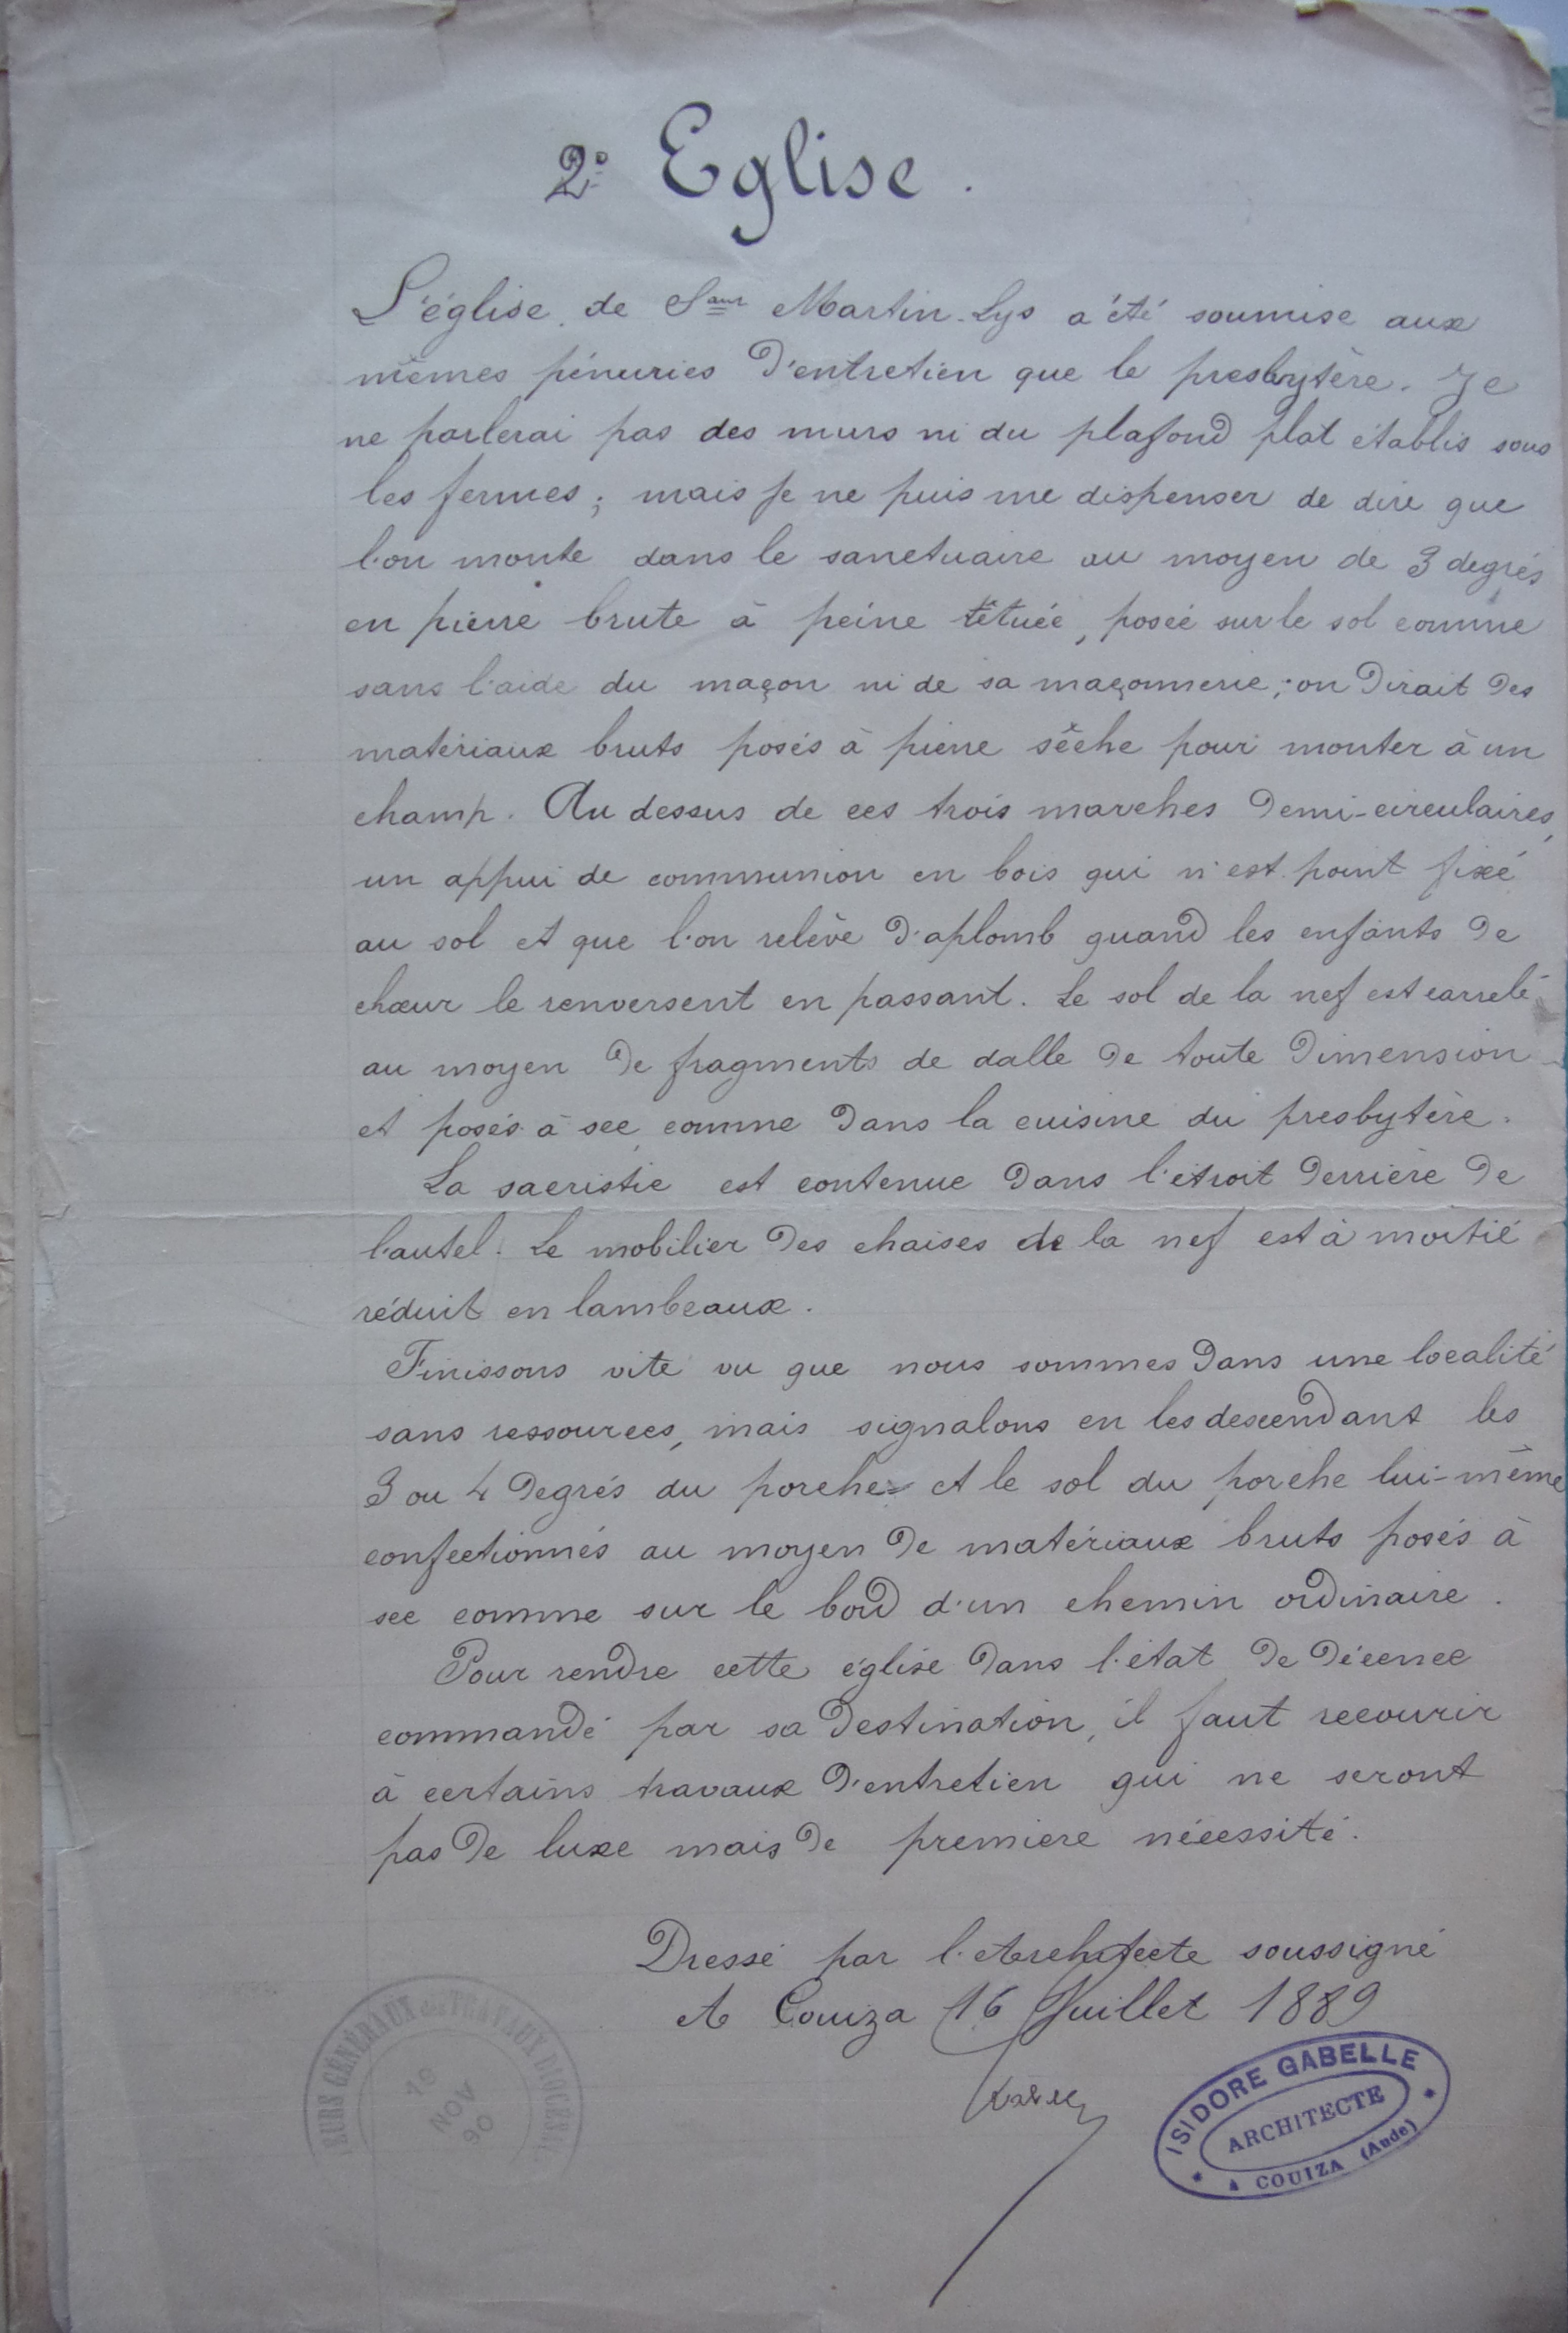 2° Eglise.
L'église de Saint Martin-Lys a été soumise aux
mêmes pénuries d'entretien que le presbytère. Je
ne parlerai pas des murs ni du plafond plat établis sous
les fermes; mais je ne puis me dispenser de dire que
l'on monte dans le sanctuaire au moyen de 3 degrés
en pierre brute à peine têtuée, posée sur le sol comme
sans l'aide du maçon ni de sa maçonnerie; on dirait des
matériaux bruts posés à pierre sêche pour monter à un
champ. Au dessus de ces trois marches demi-circulaires,
un appui de communion en bois qui n'est point fixé
au sol et que l'on relève d'aplomb quand les enfants de
chœur le renversent en passant. Le sol de la nef est carrelé
au moyen de fragments de dalle de toute dimension
et posés à sec comme dans la cuisine du presbytère.
La sacristie est contenue dans l'étroit derrière de
l'autel. Le mobilier des chaises de la nef est à moitié
réduit en lambeaux.
Finissons vite vu que nous sommes dans une localité
sans ressources, mais signalons en les descendant les
3 ou 4 degrés du porche et le sol du porche lui-même
confectionnés au moyen de matériaux bruts posés à
sec comme sur le bord d'un chemin ordinaire.
Pour rendre cette église dans l'état de décence
commandé par sa destination, il faut recourir
à certains travaux d'entretien qui ne seront
pas de luxe mais de première nécessité.
Dressé par l'Architecte soussigné
A Couiza 16 Juillet 1889
ISIDORE GABELLE
ARCHITECTE
A COUIZA (Aude)
GÉNÉRAUX des TRAVAUX
NOV
90